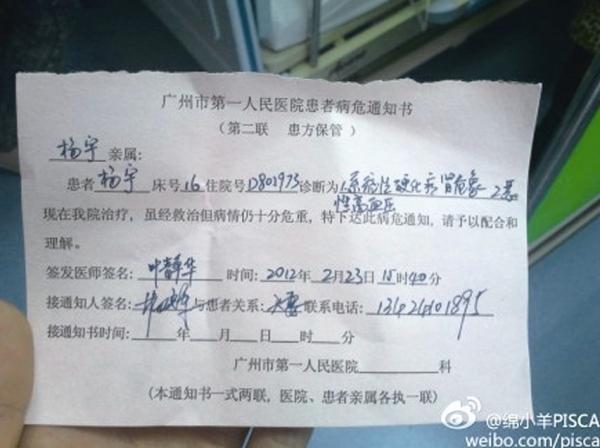 广州市第一人民医院患者病危通知书
(第二联 患方保管)
杨宇 亲属:
患者 杨宇 床号 16 住院号 D801973 诊断为 1.系统性硬化病肾危象 2.恶
性高血压
现在我院治疗，虽经救治但病情仍十分危重，特下达此病危通知，请予以配合和
理解。
签发医师签名: 叶静华 时间: 2012年 2月23日 15时40分
接通知人签名: 与患者关系: 联系电话: 13424101895
接通知书时间: 年 月 日 时 分
广州市第一人民医院 科
(本通知书一式两联，医院、患者亲属各执一联)
@绵小羊PISCA
weibo.com/pisca